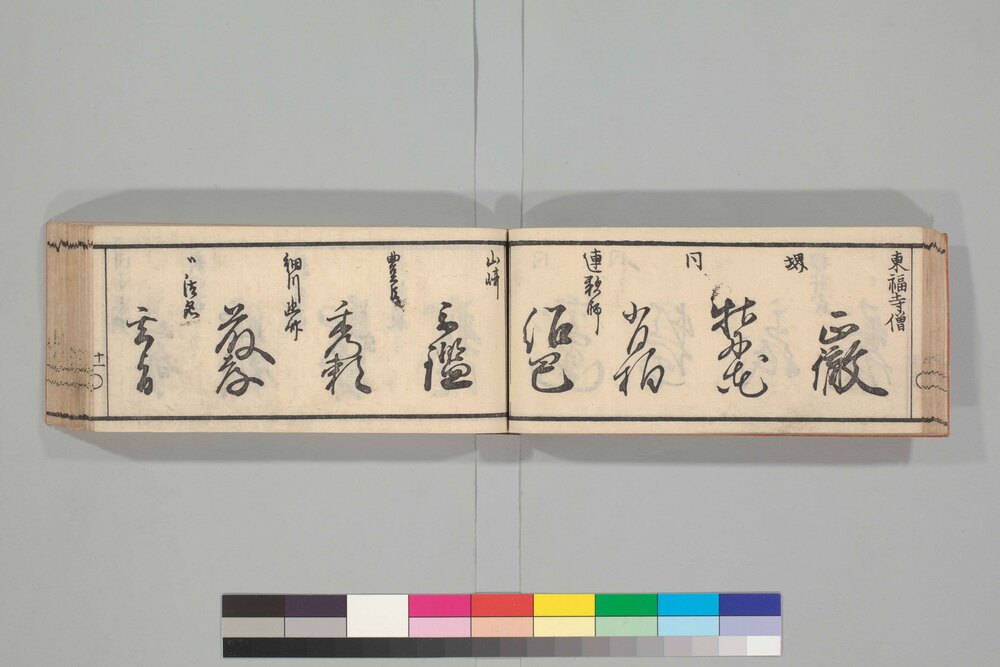 東福寺僧
正徹
堺
牡丹花
同
肖柏
連歌師
紹巴
山崎
宗鑑
豊臣氏
秀頼
細川幽斎
藤孝
〃法名
玄旨
十一